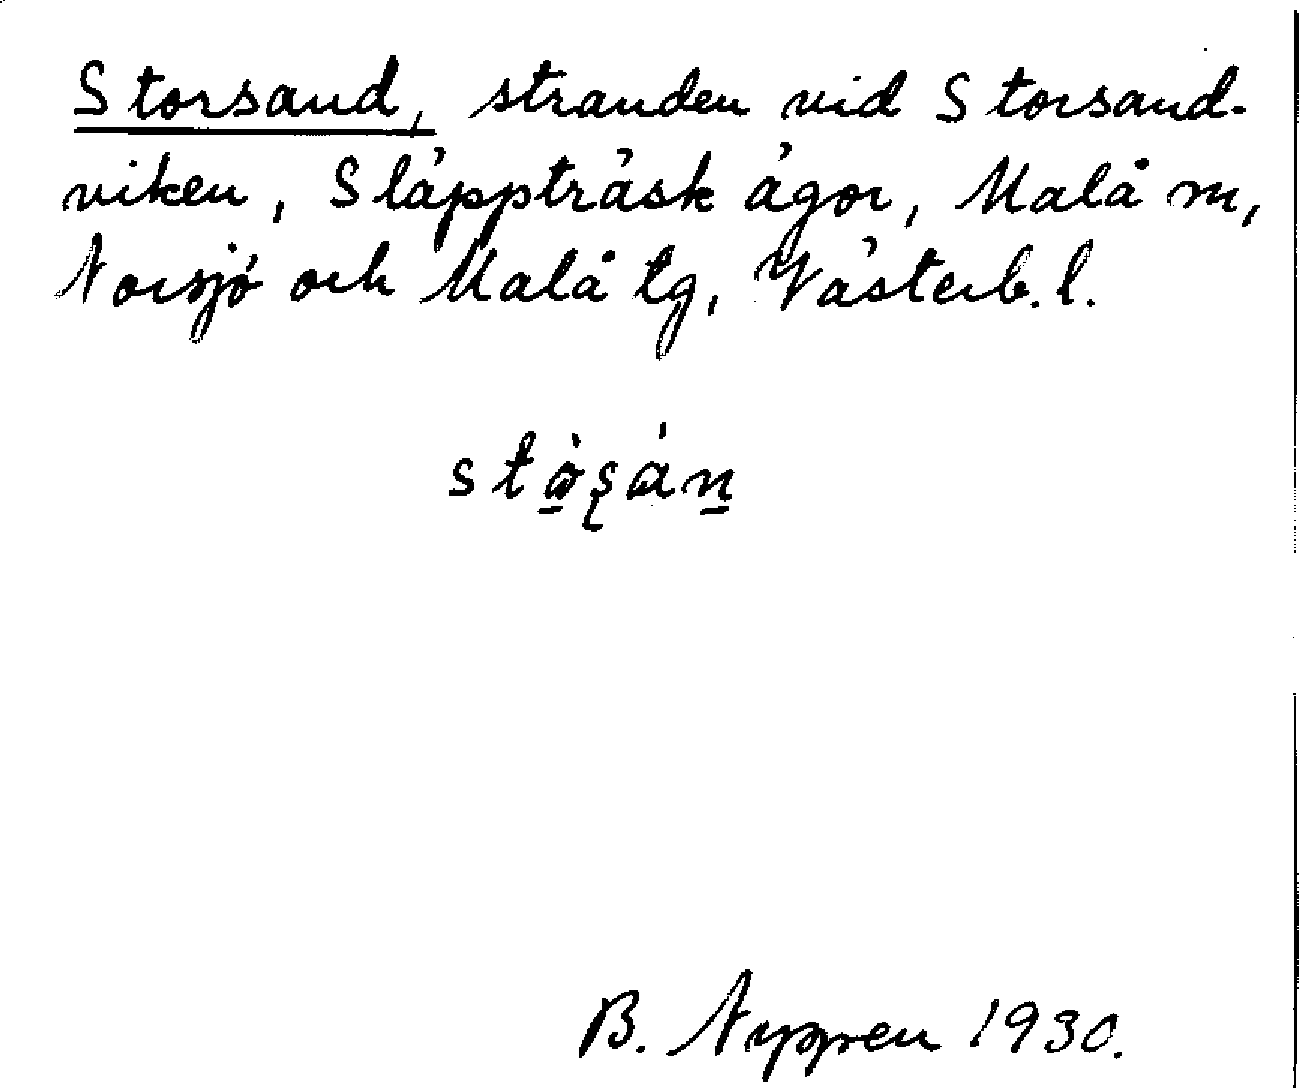 Storsand, stranden vid Storsand-
viken, Släppträsk ägor, Malå sn,
Norsjö och Malå tg, Västerb. l.
B. Nyppen 1930.